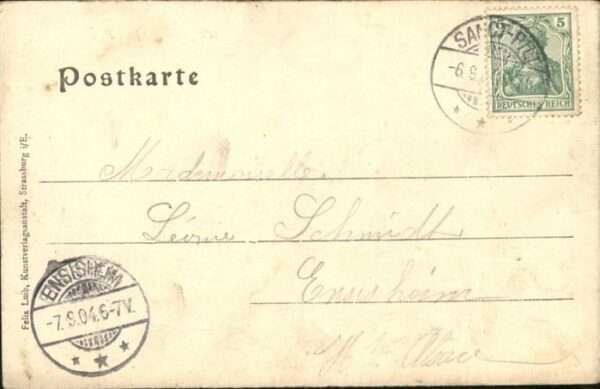 Postkarte
SANCT-PILT
-6.9.
5
DEUTSCHES REICH
Mademoiselle
Léonie Schmidt
Ensisheim
Hte Alsace
ENSISHEIM
-7.9.04.6-7V.
Felix Luib, Kunstverlagsanstalt, Strassburg i/E.